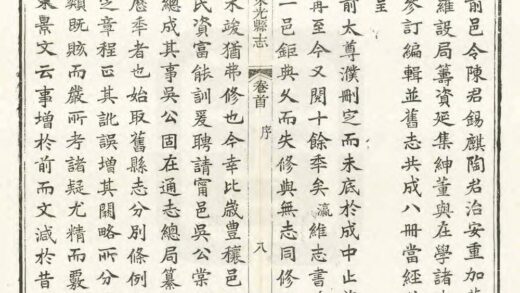 前邑令陳君錫麒陶君治安重加
羅設局籌資延集紳董與在學諸
參訂編輯並舊志共成八冊當經
呈
前太尊濮刪定而未底於成中止
再至今又閱十餘年矣瀛維志書
一邑鉅典久而失修與無志同修
東光縣志
卷首
序
八
未竣猶弗修也今幸比歲豊穰邑
民資富能訓爰聘請甯邑吳公棠
總成其事吳公固在通志總局纂
歷年者也始取舊縣志分別條例
之章程正其訛誤增其闕略所分
類既賅而嚴所考諸疑尤精而覈
宋景文云事增於前而文減於昔